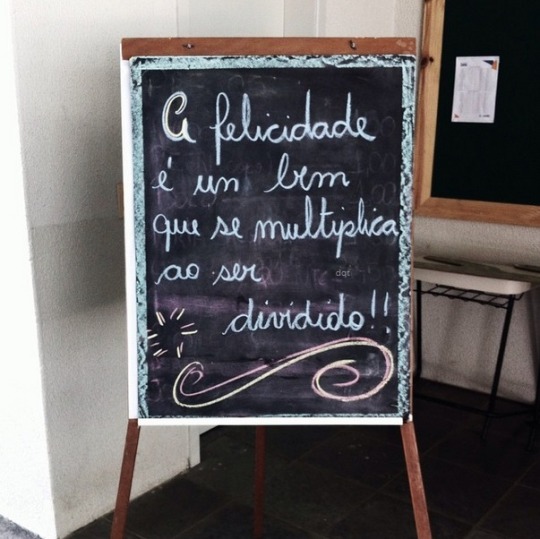 A felicidade
é um bem
que se multiplica
ao ser
dqt
dividido!!